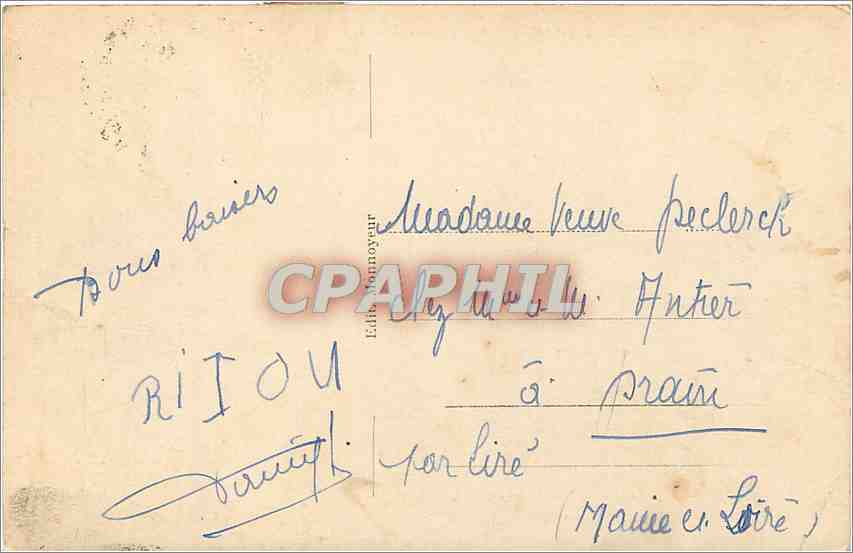 Bons baisers
RiIOU
Edit. Monnoyeur
CPAPHIL
Madame Veuve Declerck
chez Mme & M. Antier
à Drain
par Liré
(Maine et Loire)